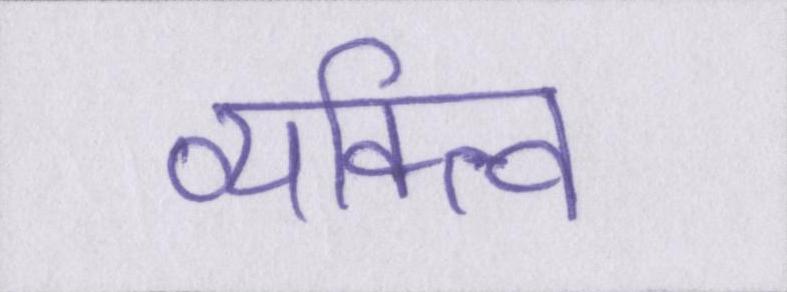 व्यक्तिव